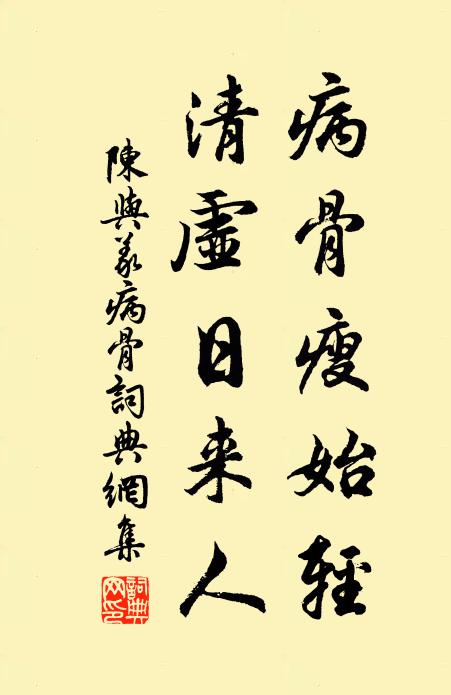 病骨瘦始輕
清虛日来人
陳與義病骨詞典網集
詞典網印